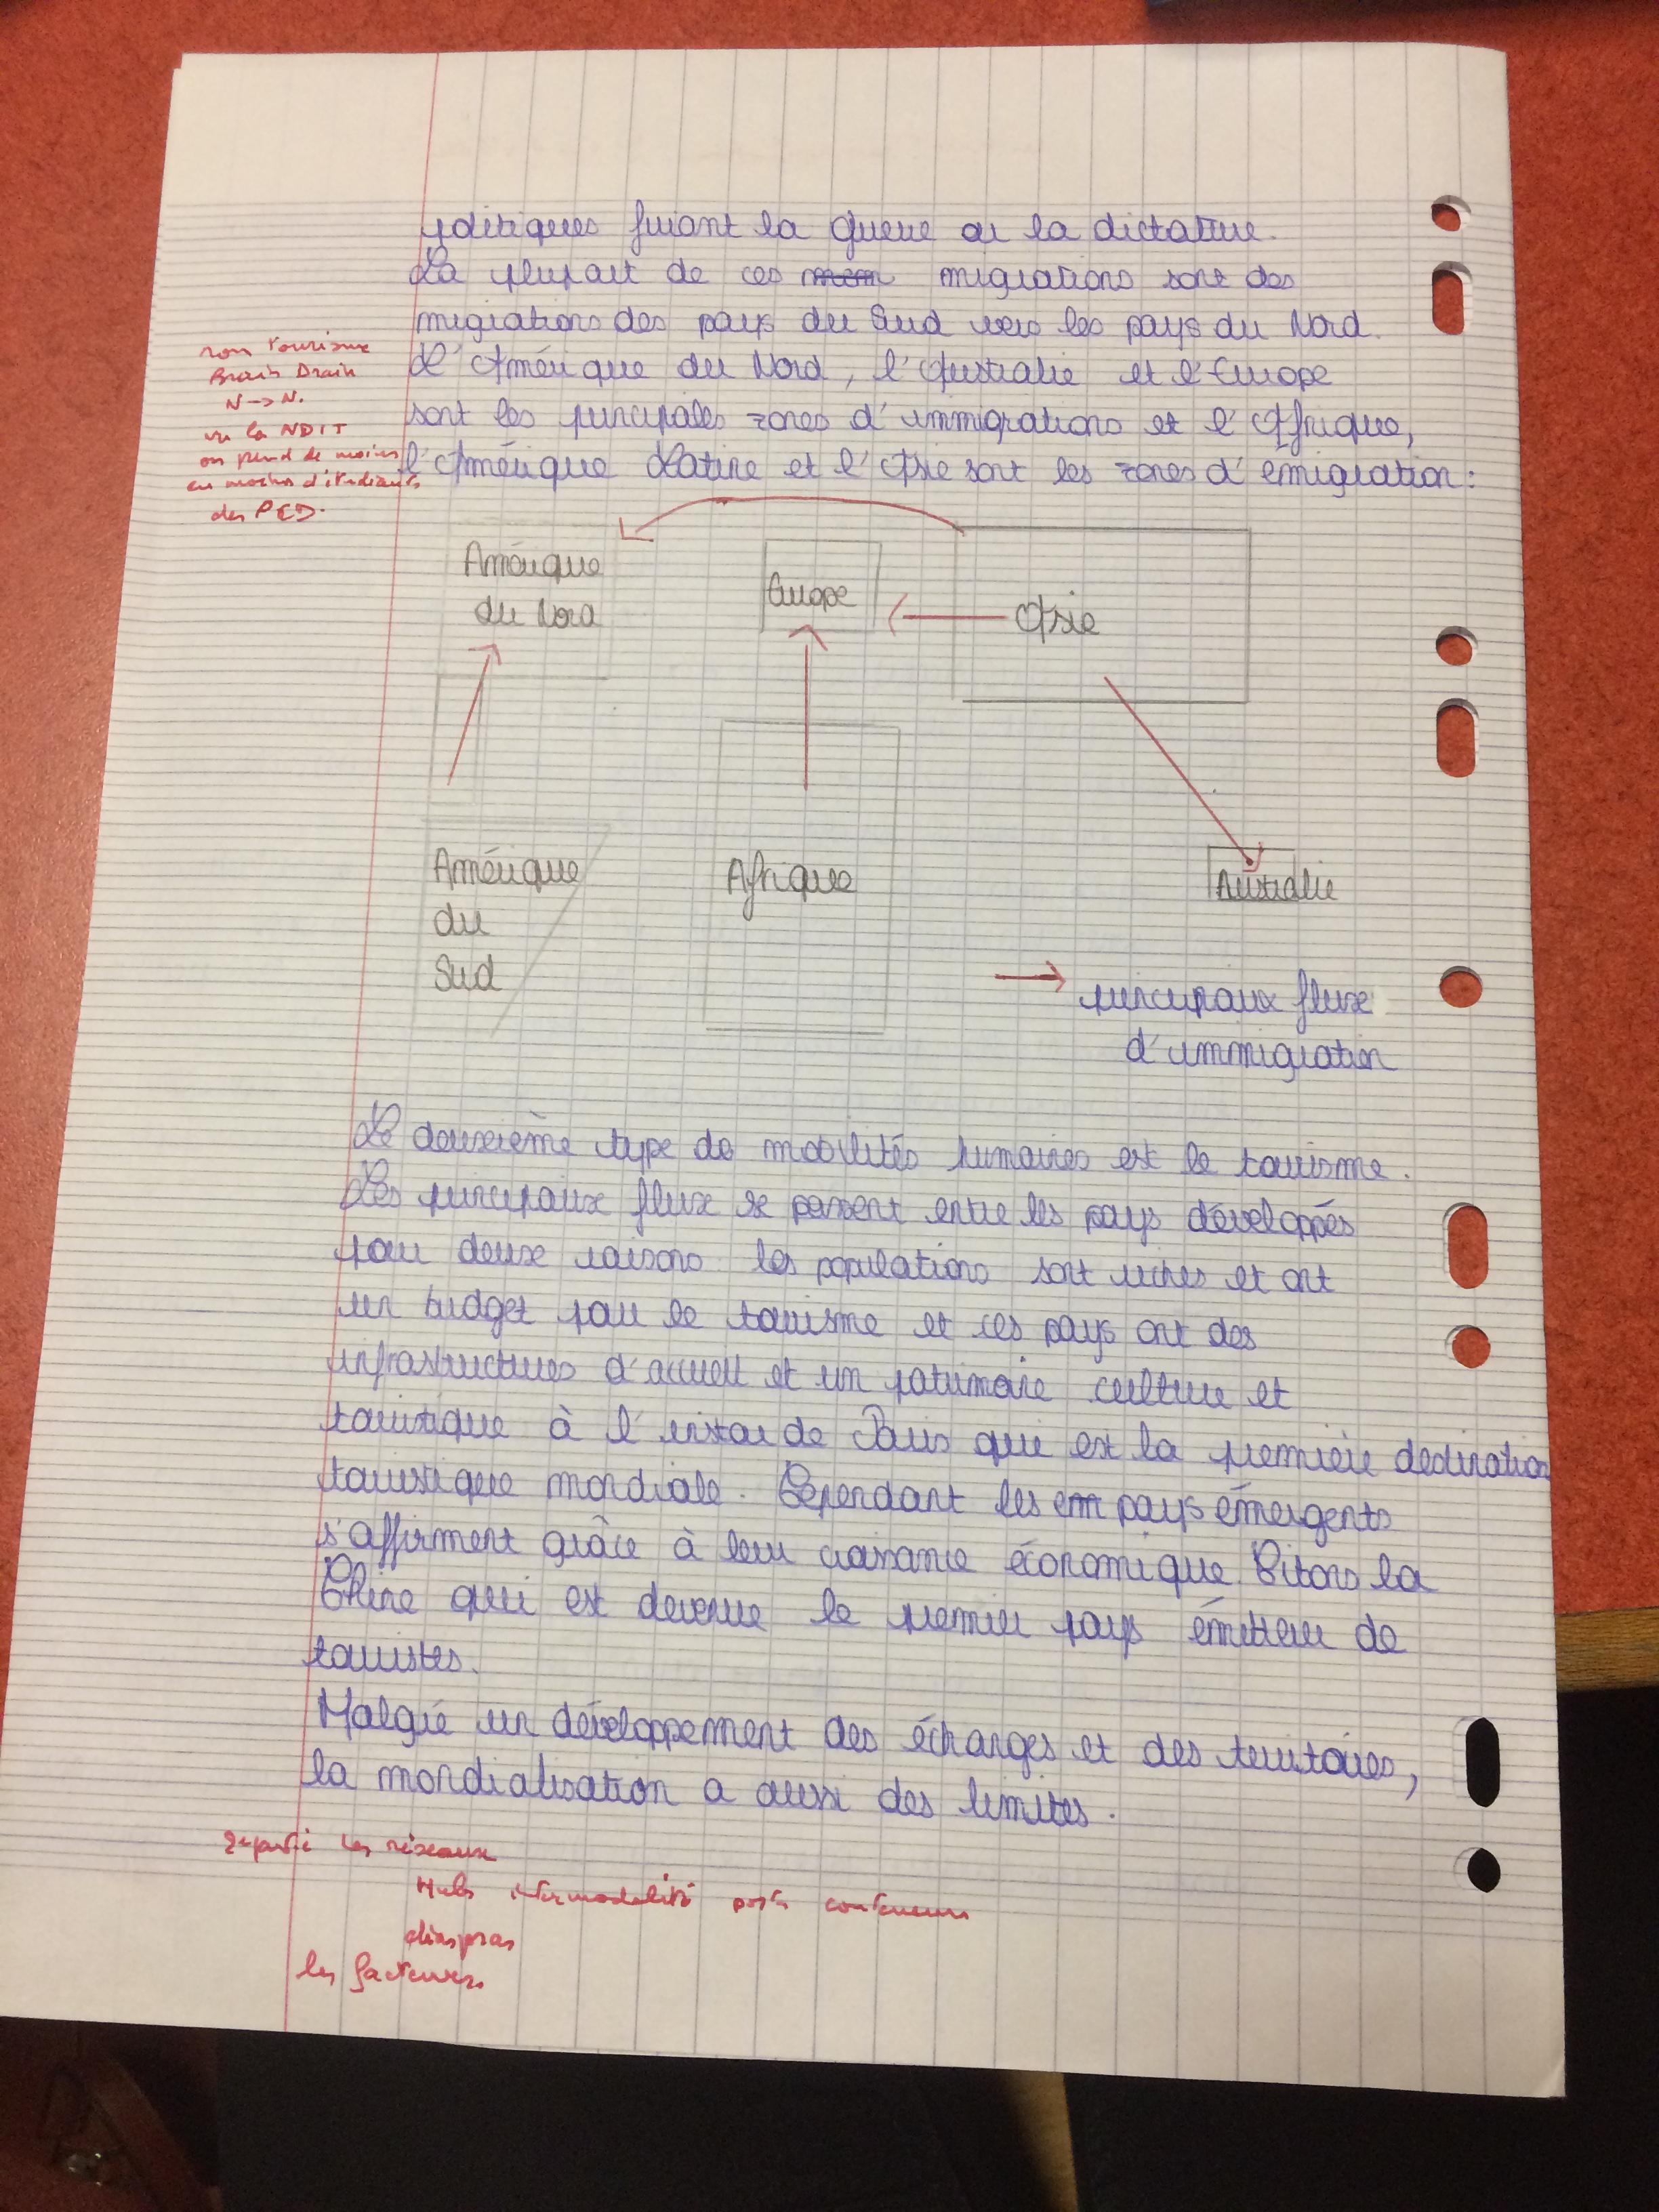 politiques fuiant la guerre ou la dictature.
La plupart de ces migrations sont des
migrations des pays du Sud vers les pays du Nord.
L'Amérique du Nord, l'Australie et l'Europe
sont les principales zones d'immigrations et l'Afrique,
l'Amérique Latine et l'Asie sont les zones d'émigration :
non tourisme
Brain Drain
N -> N.
vu la NDIT
on prend de moins
en moins d'étudiants
des PED.
Amérique
du Nord
Europe
Asie
Amérique
du
Sud
Afrique
Australie
principaux flux
d'immigration
Le deuxième type de mobilités humaines est le tourisme.
Les principaux flux se passent entre les pays développés
pour deux raisons : les populations sont riches et ont
un budget pour le tourisme et ces pays ont des
infrastructures d'accueil et un patrimoine culture et
touristique à l'instar de Paris qui est la première destination
touristique mondiale. Cependant les pays émergents
s'affirment grâce à leur croissance économique. Citons la
Chine qui est devenue le premier pays émetteur de
touristes.
Malgré un développement des échanges et des territoires,
la mondialisation a aussi des limites.
2e partie les réseaux
Hubs intermodalité ports conteneurs
diasporas
les facteurs